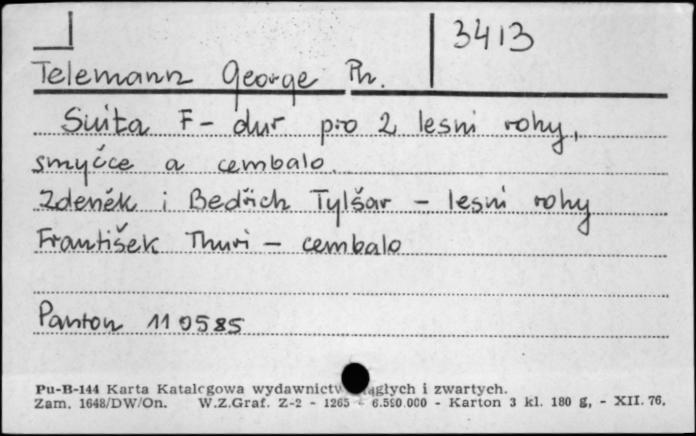 3413
Telemann George Ph.
Suita F- dur pro 2 lesní rohy,
smyčce a cembalo.
Zdeněk i Bedřich Tylšar - lesní rohy
František Thuri - cembalo
Panton 11 0585
Pu-B-144 Karta Katalogowa wydawnictw ciągłych i zwartych.
Zam. 1648/DW/On. W.Z.Graf. Z-2 - 1265 - 6.500.000 - Karton 3 kl. 180 g, - XII. 76.